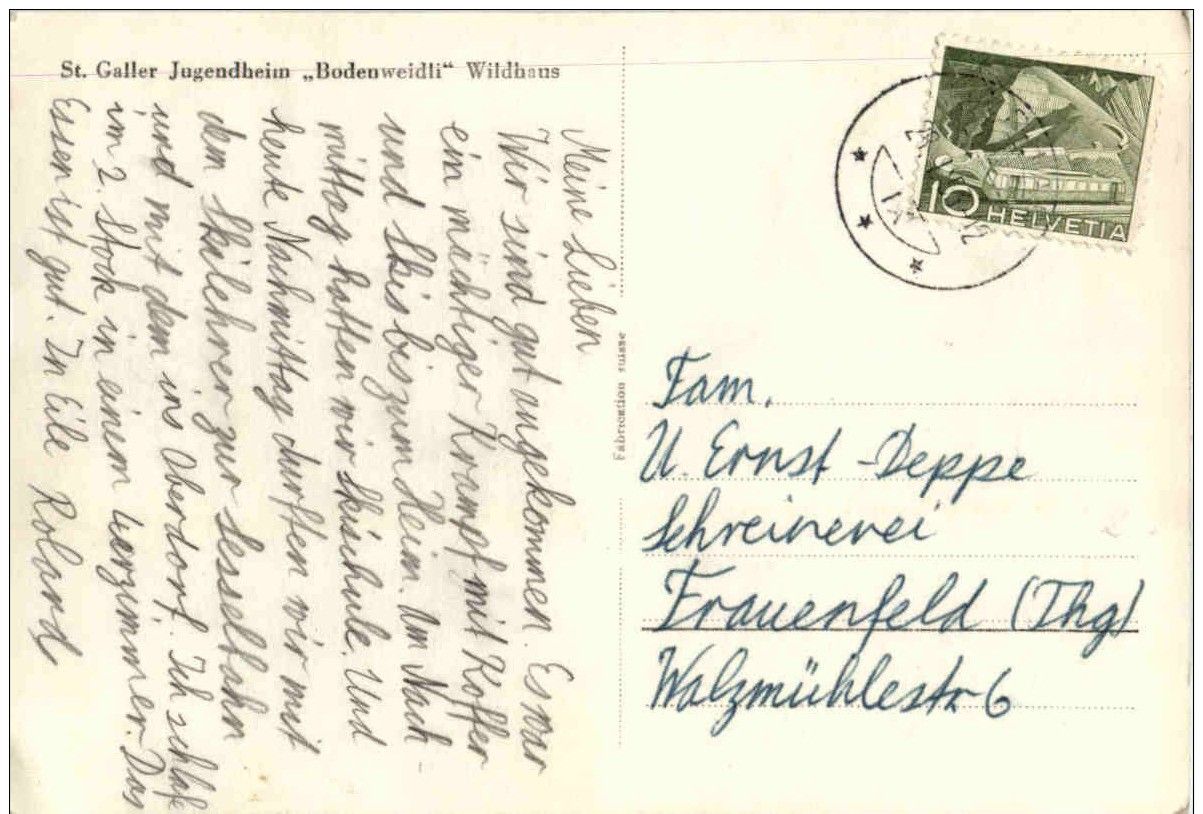 St. Galler Jugendheim „Bodenweidli“ Wildhaus
Meine Lieben
Wir sind gut angekommen. Es war
ein mächtiger Krampf mit Koffer
und Skis bis zum Heim. Am Nach-
mittag hatten wir Skischule. Und
heute Nachmittag durften wir mit
dem Skilehrer zur Sesselbahn
und mit dem ins Oberdorf. Ich schlafe
im 2. Stock in einem 4erzimmer. Das
Essen ist gut. In Eile Roland
Fabrication suisse
10 HELVETIA
Fam.
U. Ernst-Deppe
Schreinerei
Frauenfeld (Thg)
Walzmühlestr 6